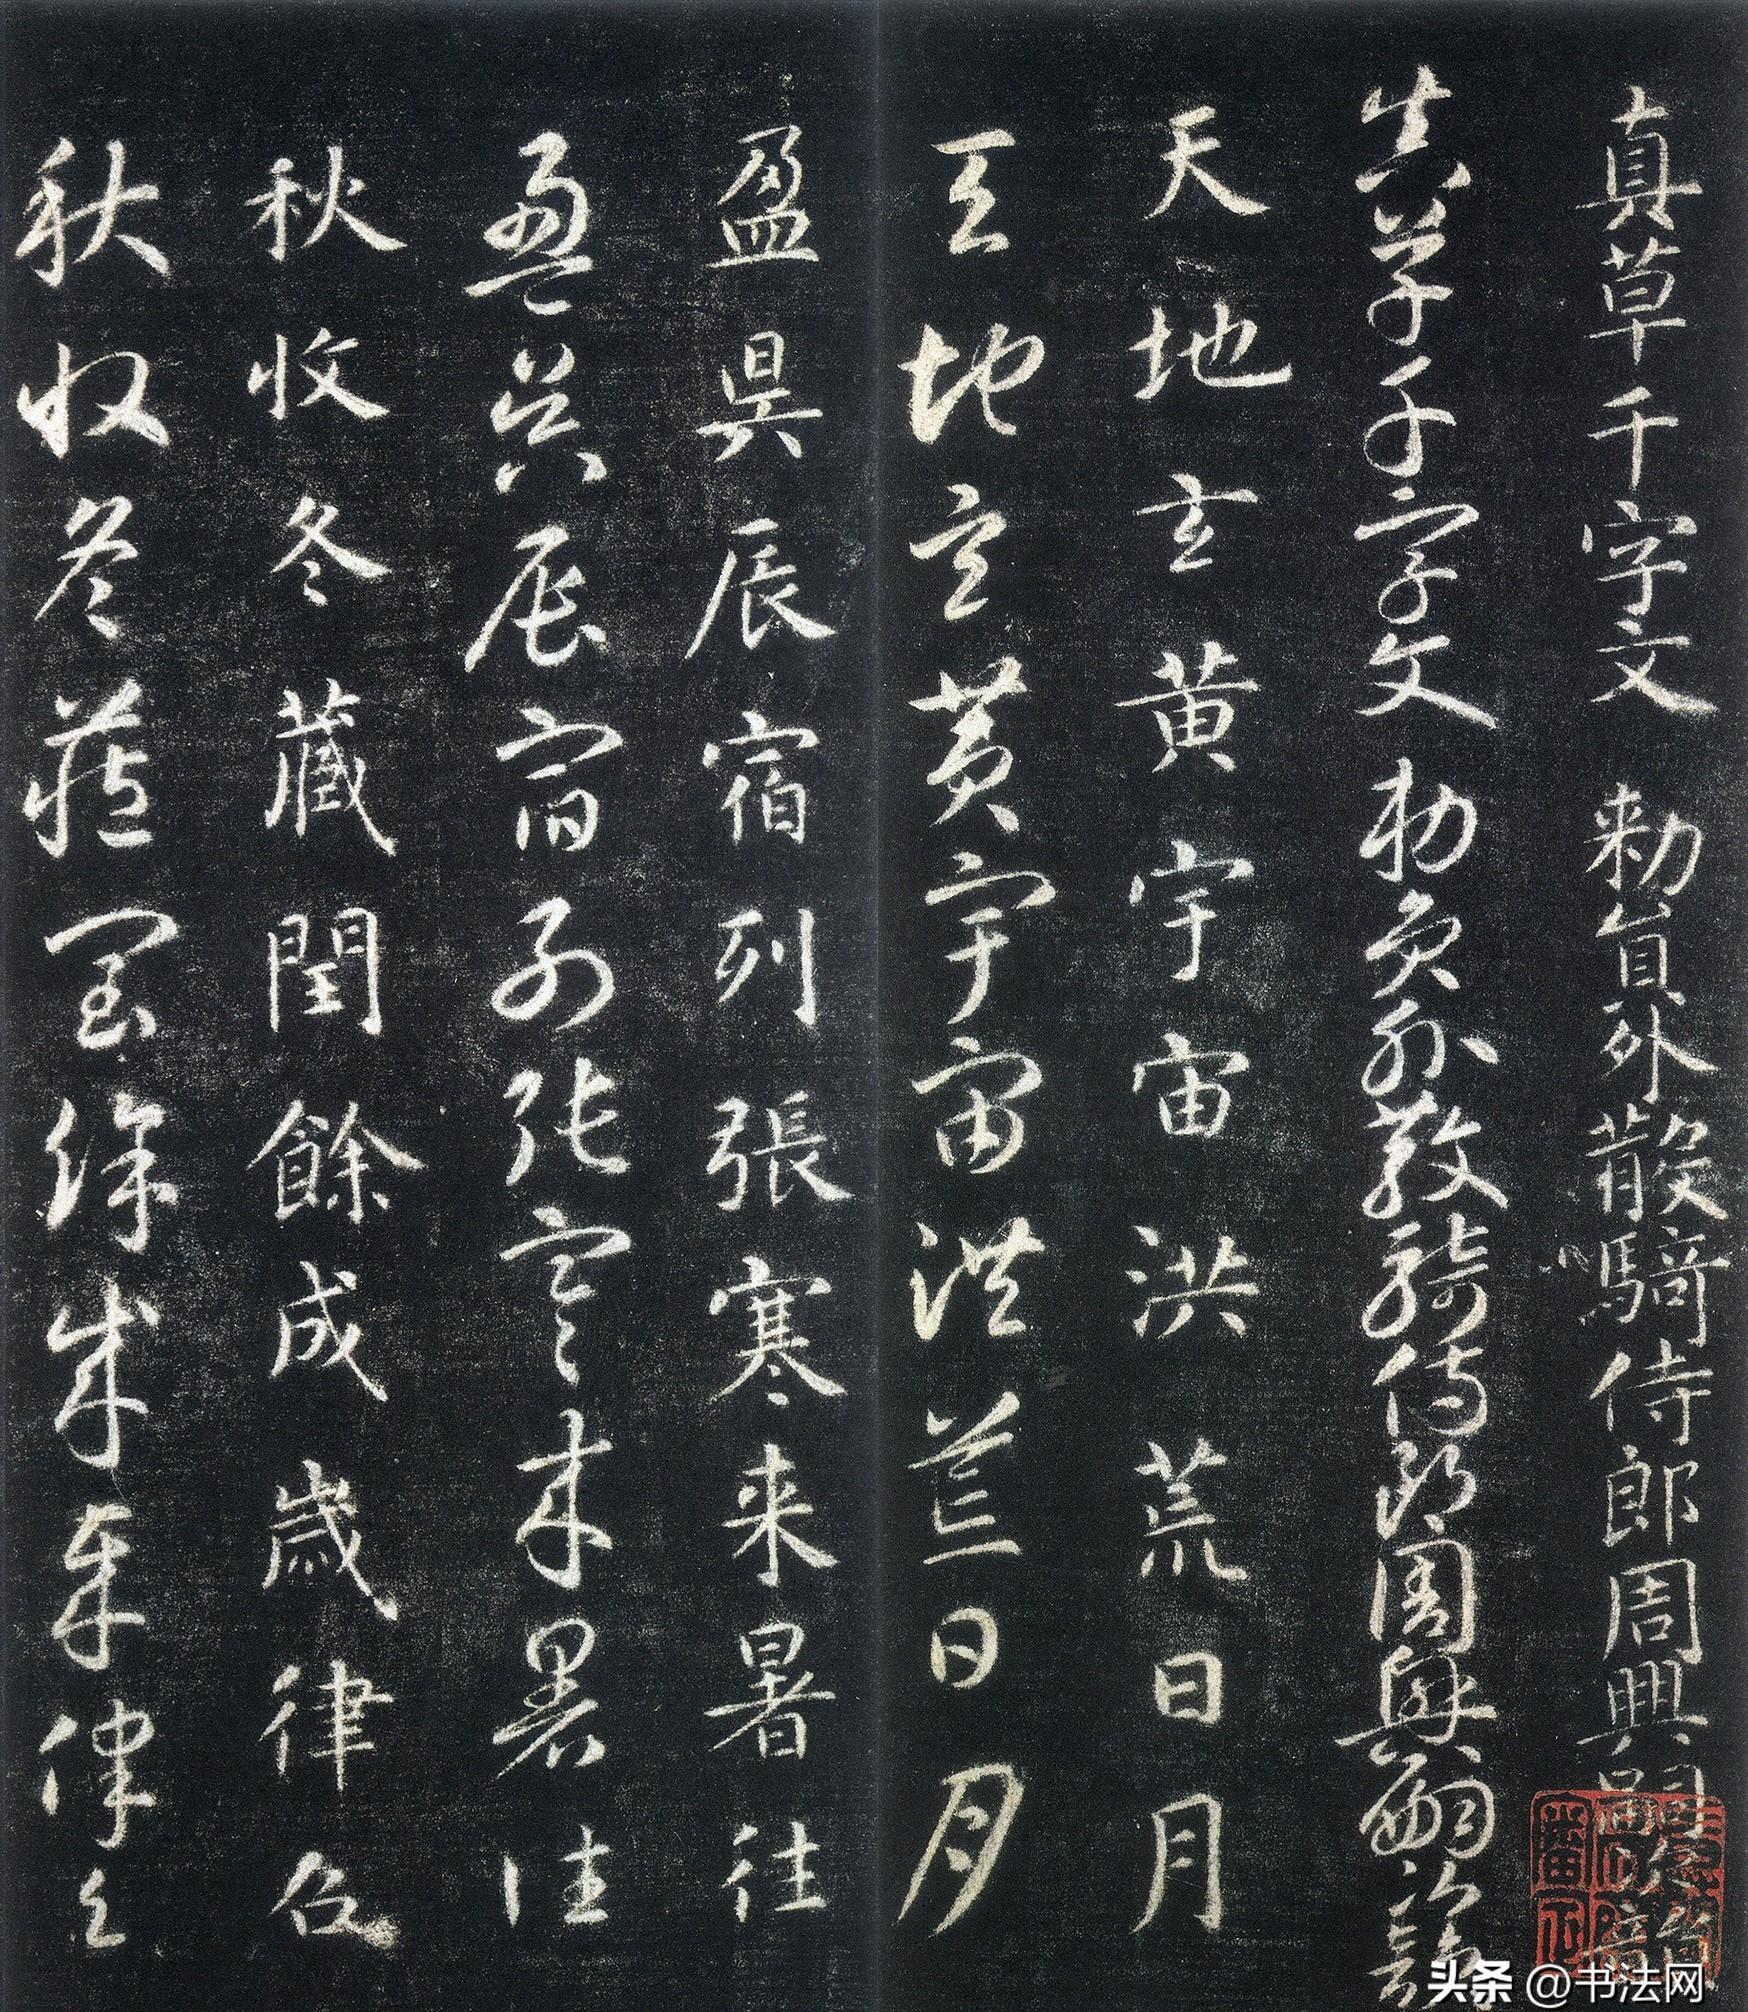 真草千字文 勅員外散騎侍郎周興嗣次韻
真草千字文勅員外散騎侍郎周興嗣次韻
天地玄黄宇宙洪荒日月
天地玄黄宇宙洪荒日月
盈昃辰宿列張寒来暑往
盈昃辰宿列張寒来暑往
秋收冬藏閏餘成歲律召
秋收冬藏閏餘成歲律召
头条 @书法网